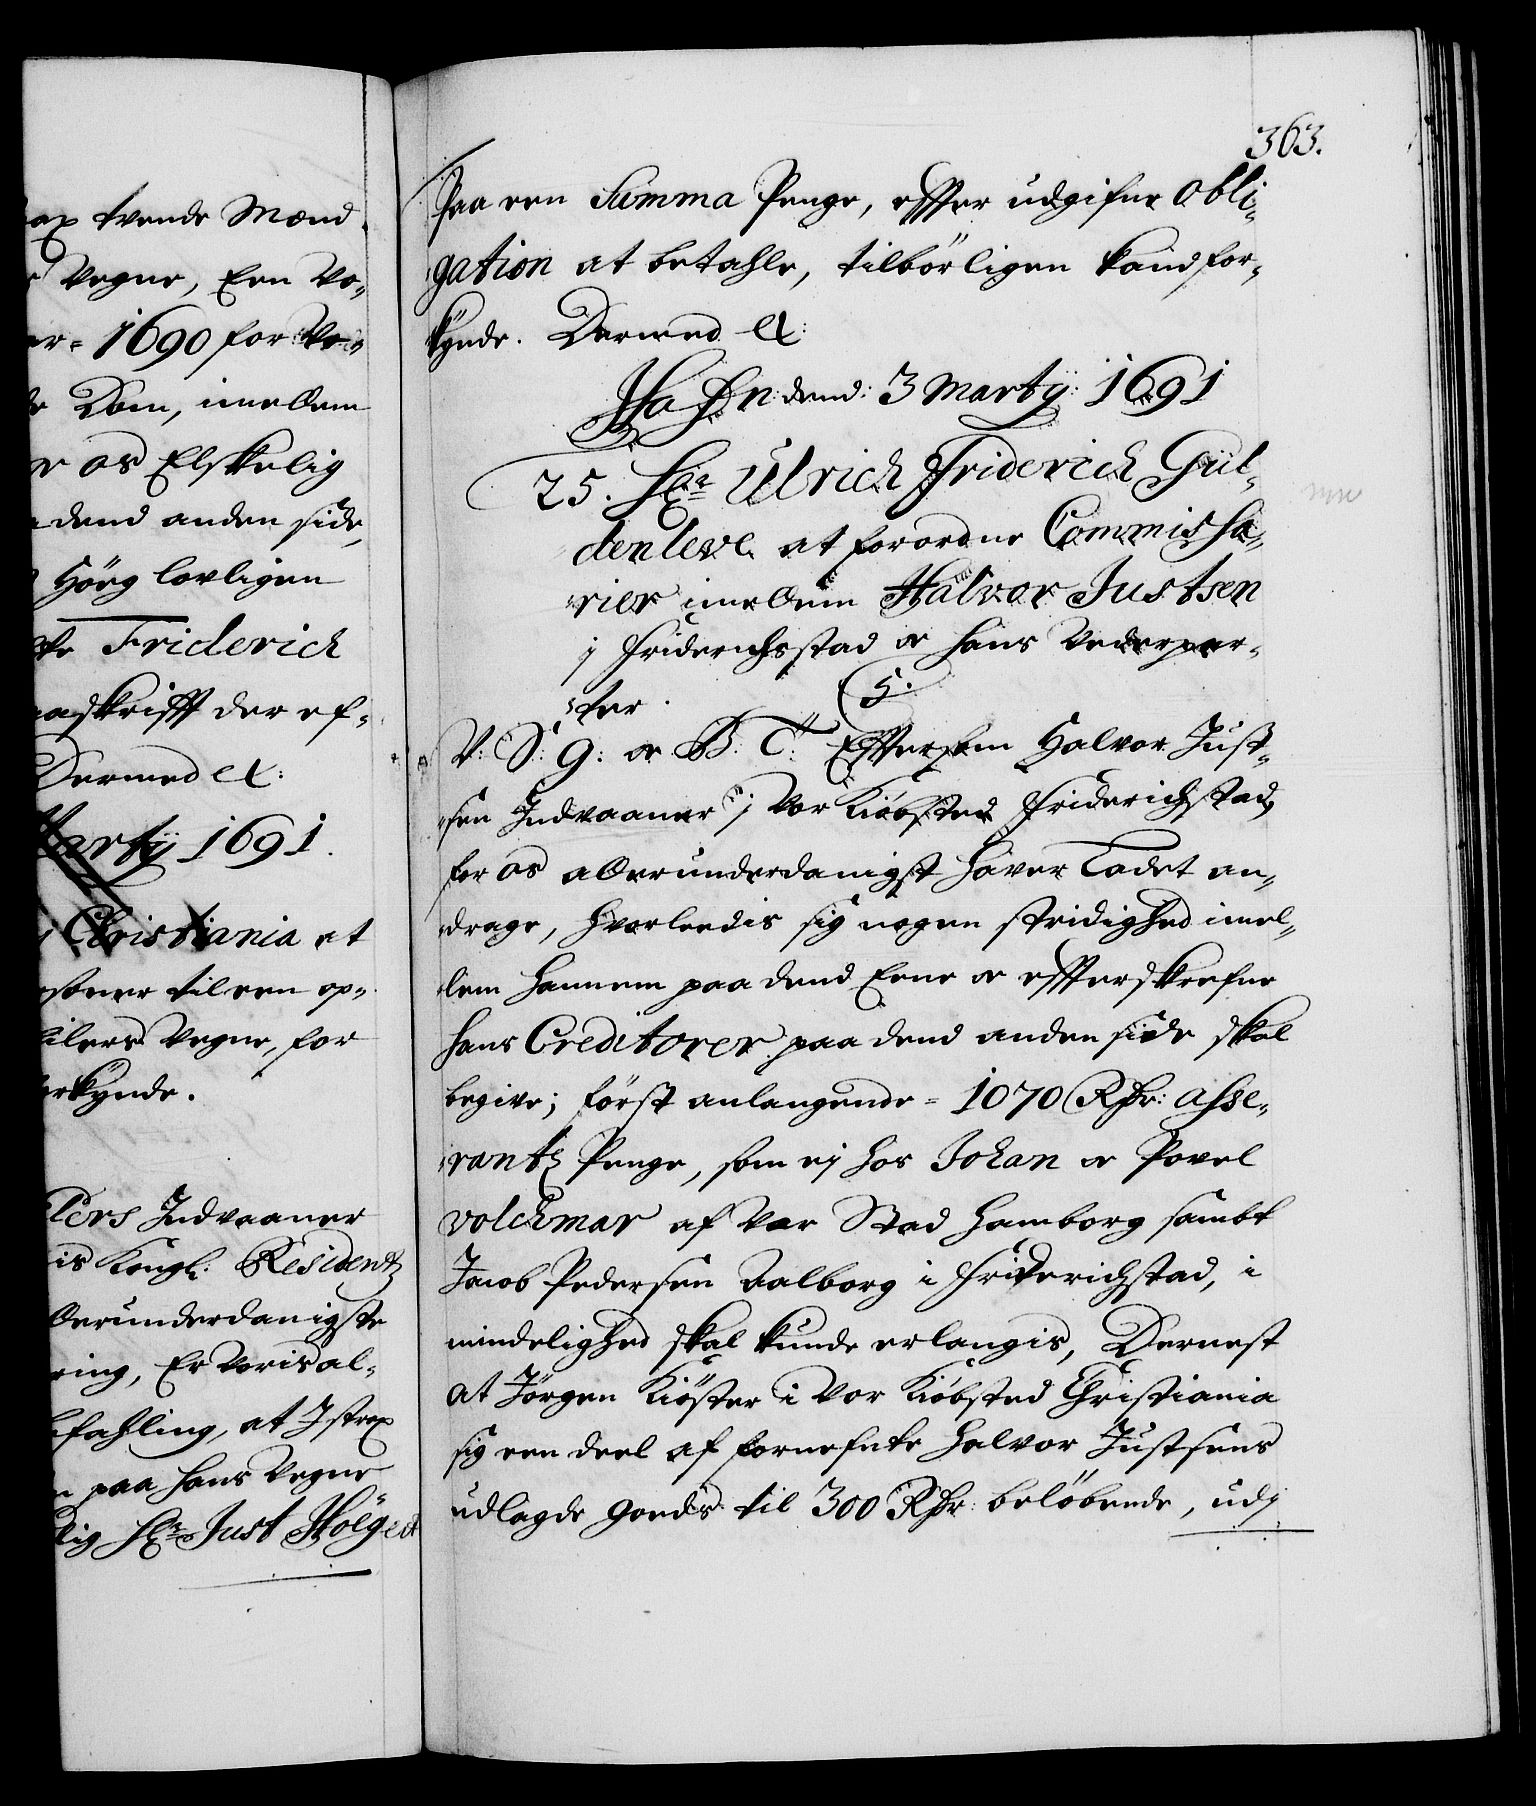 ax tvende Mænd
Vegne, Een Vo-
er = 1690 for Vo-
de Dom, imellem
or os Elskelig
dend anden side,
Hörg lovligen
te Friderich
aaskrifft der ef-
Dermed &:
Martÿ 1691.
Christiania at
soner til een op-
ilers Vegne, for
erkÿnde.
lers Indvaaner
is Kongl: Residentz
llerunderdanigste
ring, Er Voris al-
befahling, at I strax
paa hans Vegne
lig Hr Just Höeg et
363.
paa een Summa Penge, effter udgifne obli-
gation at betahle, tilbörligen kand for-
kÿnde. Dermed &:
Hafn dend: 3 Martÿ: 1691
25. Hr Ulrich Friderich Gül-
denleve at forordne Commissa-
rier imellem Halvor Justsen
j Friderichsstad oc hans Vederpar-
ter.
C 5.
V: S: G: oc B. T: Effterssom Halvor Just-
sen Indvaaner j Vor Kiöbsted Friderichstad,
for os allerunderdanigst haver ladet an-
drage, hvorleedis sig nogen stridighed imel-
lem hannem paa dend Eene oc effterskrefne
hans Creditorer paa dend anden side skal
begive; först anlangende = 1070 Rdr: asse-
rantz Penge, som ej hos Johan oc Povel
volchmar af Vor Stad Hamborg sambt
Jacob Pedersen Aalborg i Friderichstad, i
mindelighed skal kunde erlangis, Dernest
at Jörgen Kiöster i Vor Kiöbsted Christiania
sig een deel af fornefnte Halvor Justsens
udlagde goeds til 300 Rdr: belöbende, udj